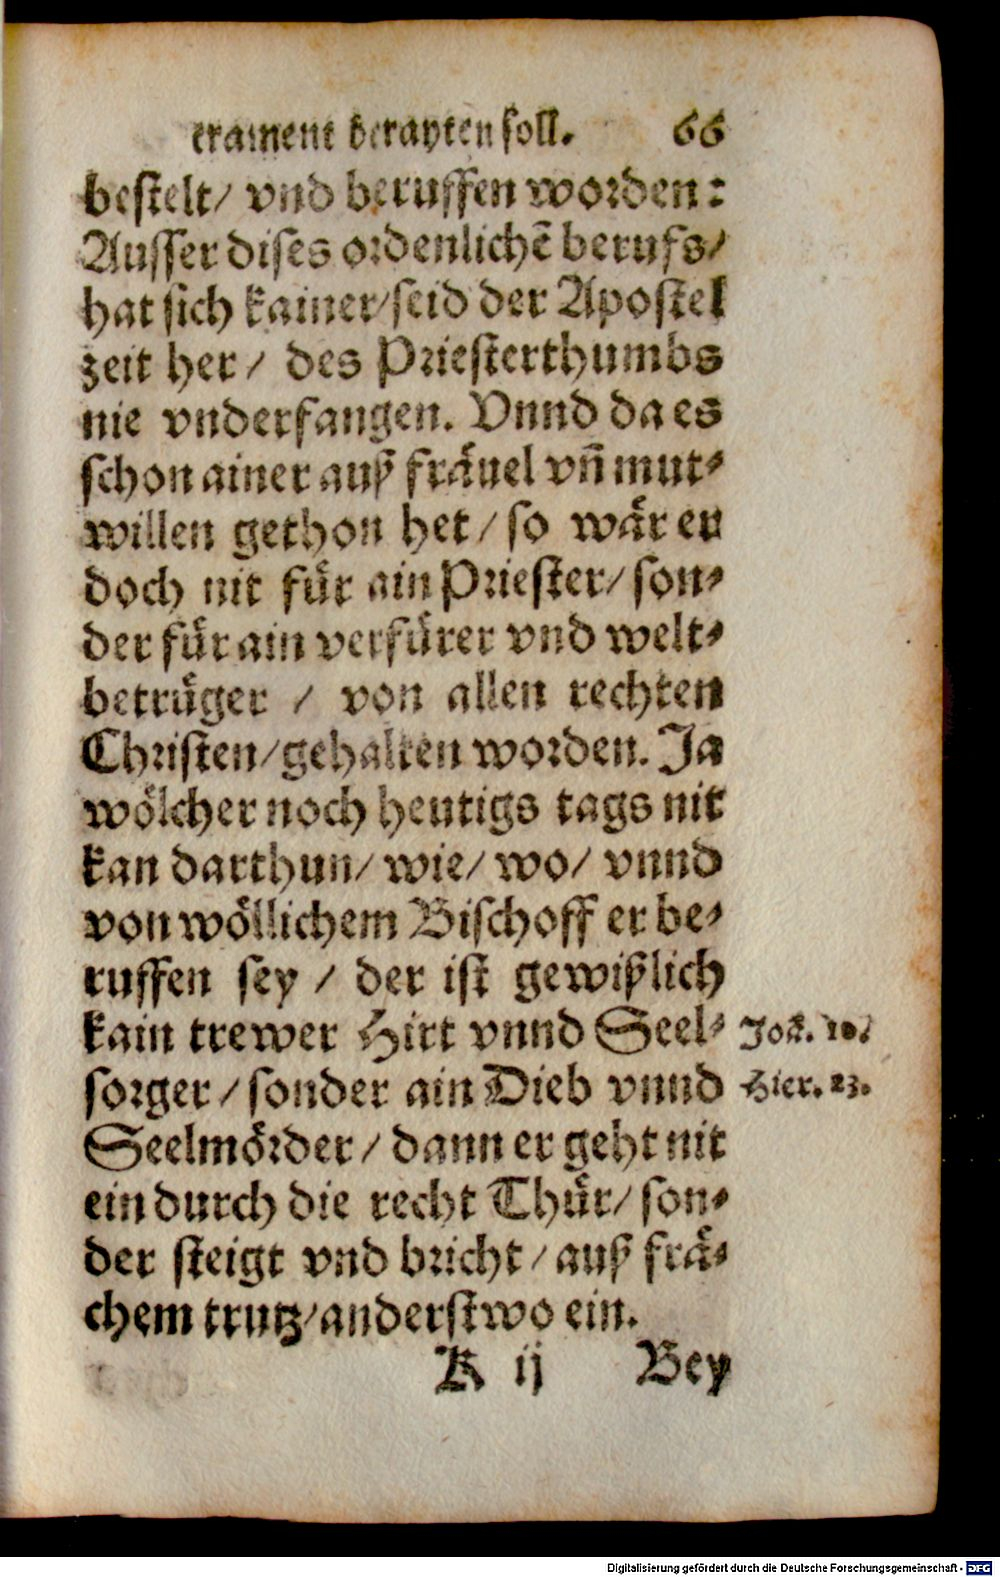 crament berayten soll. 66
bestelt/ vnd beruffen worden:
Ausser dises ordenlichẽ berufs/
hat sich kainer/seid der Apostel
zeit her/ des Priesterthumbs
nie vnderfangen. Vnnd da es
schon ainer auß fräuel vñ mut-
willen gethon het/ so wär er
doch nit für ain Priester/ son-
der für ain verfürer vnd welt-
betrüger / von allen rechten
Christen/gehalten worden. Ja
wölcher noch heutigs tags nit
kan darthun/ wie/ wo/ vnnd
von wöllichem Bischoff er be-
ruffen sey / der ist gewißlich
kain trewer Hirt vnnd Seel-
Joä. 10.
sorger/ sonder ain Dieb vnnd
Hier. 23.
Seelmörder/ dann er geht nit
ein durch die recht Thür/ son-
der steigt vnd bricht/ auß frä-
chem trutz/anderstwo ein.
K ij Bey
Digitalisierung gefördert durch die Deutsche Forschungsgemeinschaft - DFG